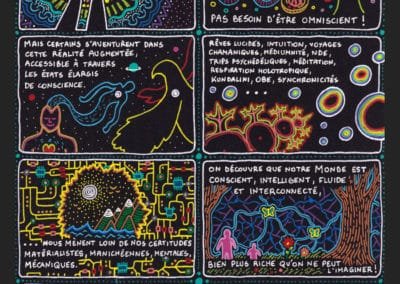 PAS BESOIN D'ÊTRE OMNISCIENT !
MAIS CERTAINS S'AVENTURENT DANS
CETTE RÉALITÉ AUGMENTÉE,
ACCESSIBLE À TRAVERS
LES ÉTATS ÉLARGIS
DE CONSCIENCE.
RÊVES LUCIDES, INTUITION, VOYAGES
CHAMANIQUES, MÉDIUMNITÉ, NDE,
TRIPS PSYCHÉDÉLIQUES, MÉDITATION,
RESPIRATION HOLOTROPIQUE,
KUNDALINI, OBE, SYNCHRONICITÉS
...
... NOUS MÈNENT LOIN DE NOS CERTITUDES
MATÉRIALISTES, MANICHÉENNES, MENTALES,
MÉCANIQUES.
ON DÉCOUVRE QUE NOTRE MONDE EST
CONSCIENT, INTELLIGENT, FLUIDE
ET INTERCONNECTÉ,
BIEN PLUS RICHE QU'ON NE PEUT
L'IMAGINER !